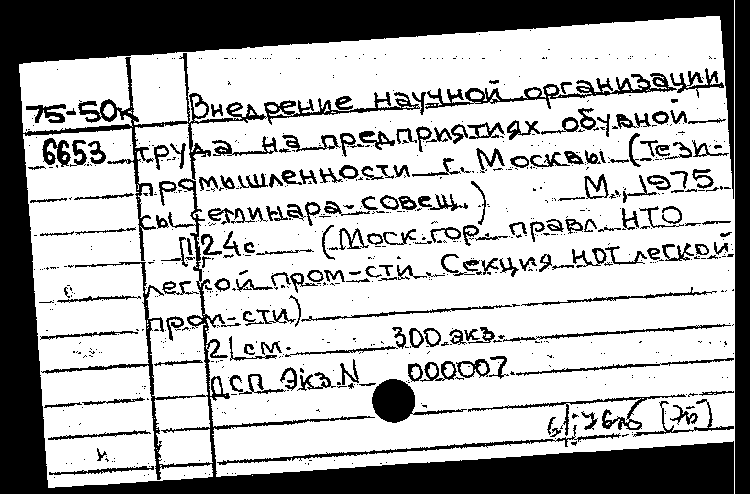 75-50к Внедрение научной организации
6653 труда на предприятиях обувной
промышленности г. Москвы. (Тези-
сы семинара-совещ.) М., 1975
[1]24с (Моск.гор. правл. НТО
легкой пром-сти. Секция НОТ легкой
пром-сти).
21 см. 300 экз.
ДСП Экз.N 000007
[75]